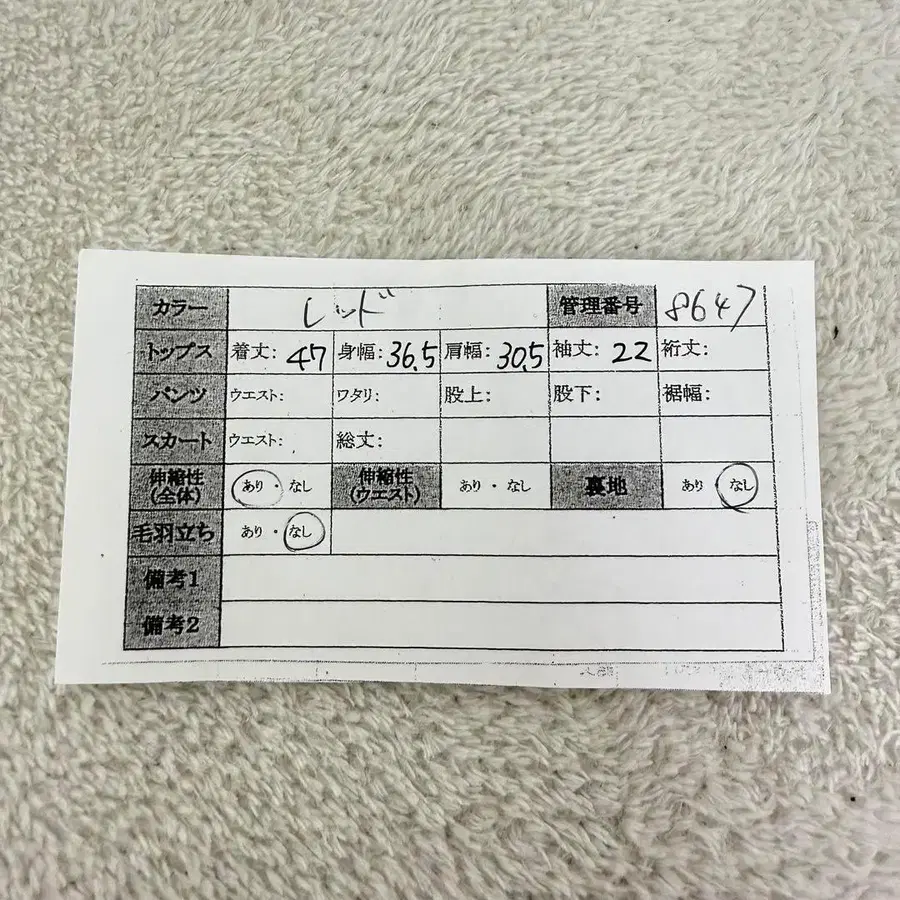 カラー レッド 管理番号 8647
トップス 着丈: 47 身幅: 36.5 肩幅: 30.5 袖丈: 22 裄丈:
パンツ ウエスト: ワタリ: 股上: 股下: 裾幅:
スカート ウエスト: 総丈:
伸縮性(全体) あり・なし 伸縮性(ウエスト) あり・なし 裏地 あり・なし
毛羽立ち あり・なし
備考1
備考2